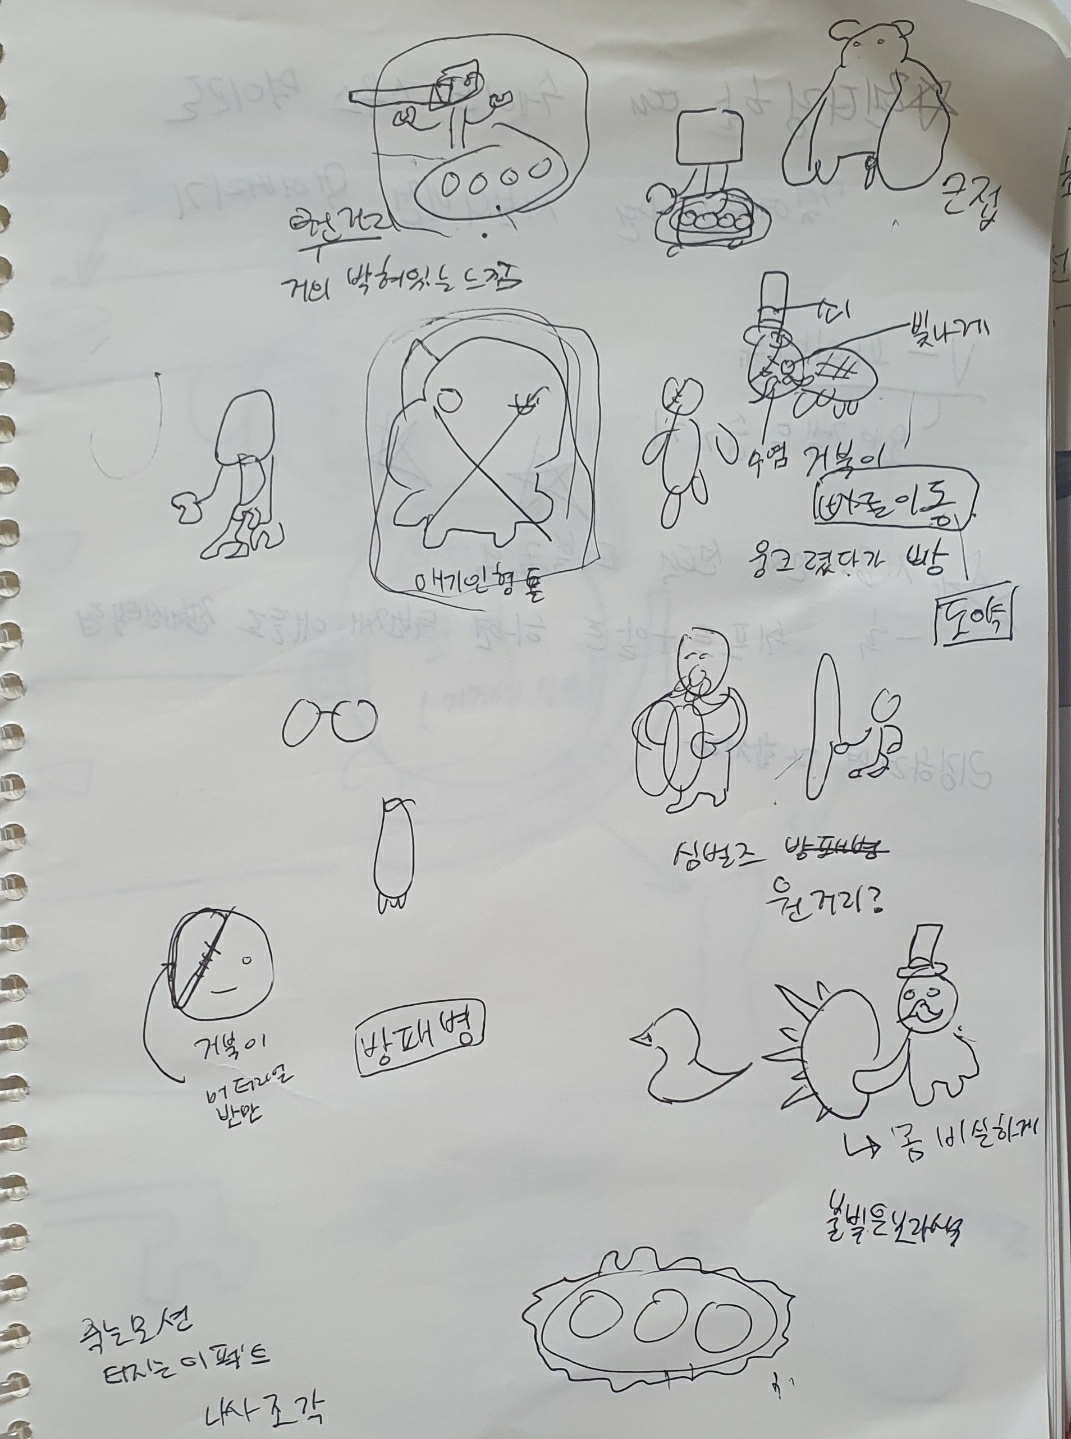 원거리
거의 박혀있는 느낌
근접
띠
빛나게
수염 거북이
빠른이동
웅크렸단가 빵
도약
애기인형 툴
심벌즈 방패병
원거리?
거북이
머터리얼
반만
방패병
몸 비슬하게
불빛은 보라색
죽는모션
터지는 이펙트
나사 조각